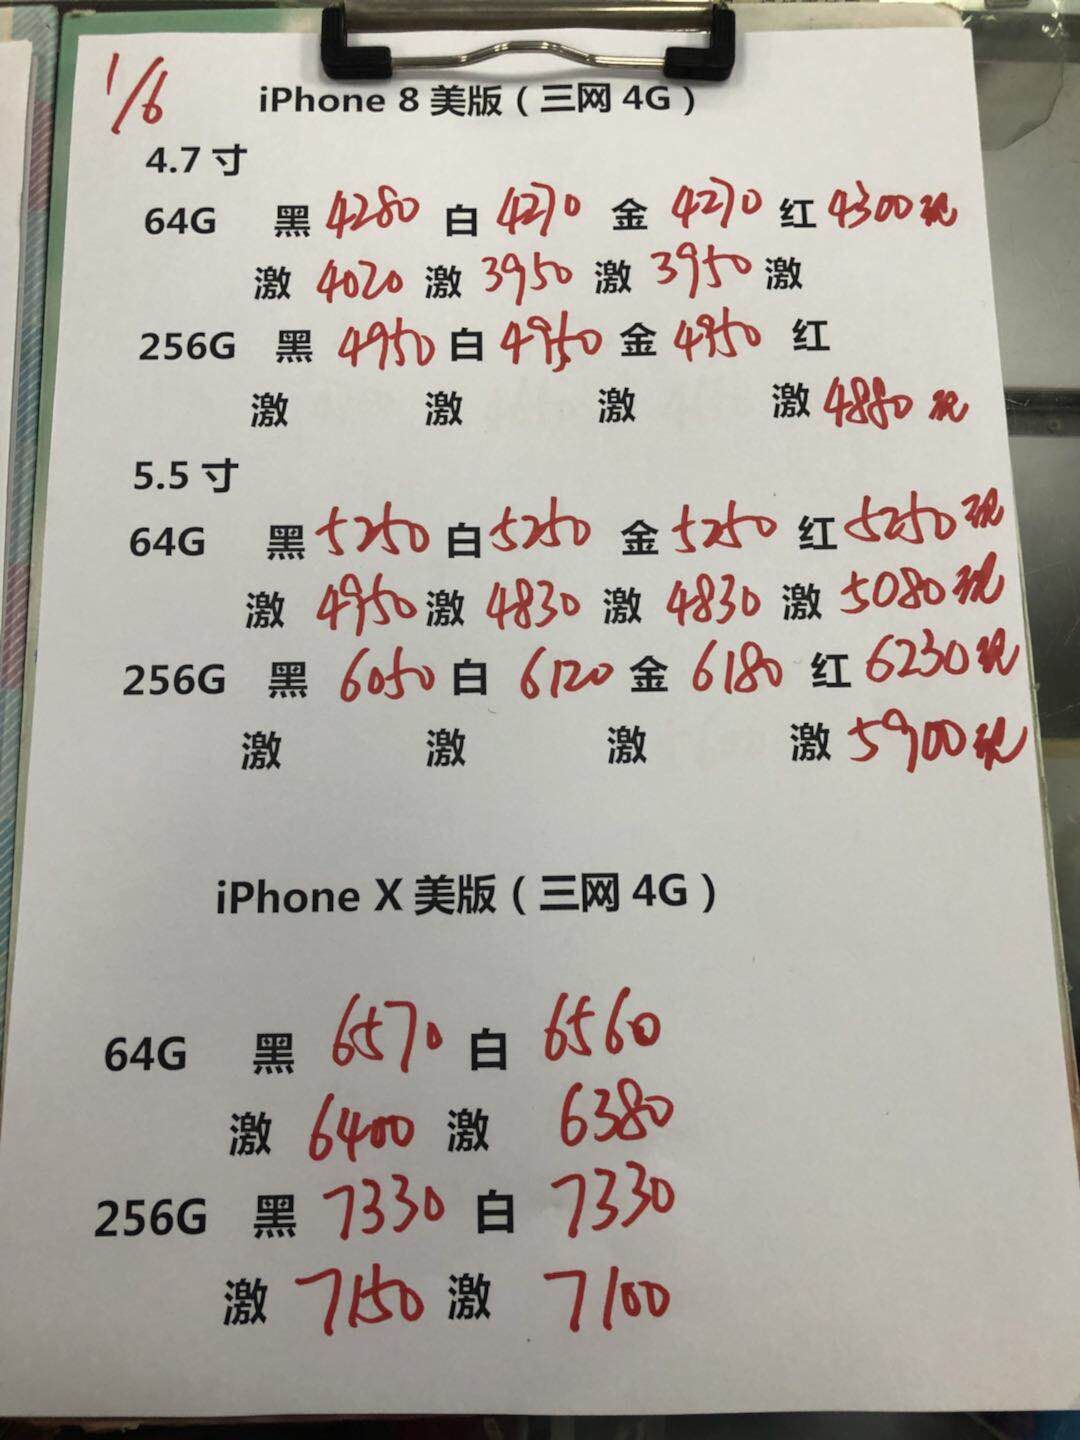 1/6
iPhone 8 美版（三网 4G）
4.7 寸
64G 黑 4280 白 4270 金 4270 红 4300 现
激 4020 激 3950 激 3950 激
256G 黑 4950 白 4950 金 4950 红
激 激 激 激 4880 现
5.5 寸
64G 黑 5250 白 5250 金 5250 红 5250 现
激 4950 激 4830 激 4830 激 5080 现
256G 黑 6050 白 6120 金 6180 红 6230 现
激 激 激 激 5900 现
iPhone X 美版（三网 4G）
64G 黑 6570 白 6560
激 6400 激 6380
256G 黑 7330 白 7330
激 7150 激 7100